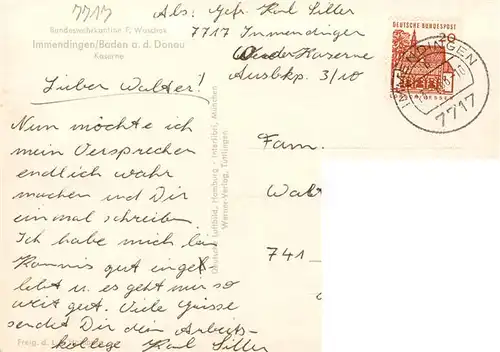 7717
Bundeswehrkantine P. Waschek
Immendingen/Baden a. d. Donau
Kaserne
Abs: Gefr. Karl Siller
7717 Immendingen
Kaserne
Ausbkp. 3/10
DEUTSCHE BUNDESPOST
20
LORSCH HESSEN
IMMENDINGEN
7717
Lieber Walter!
Nun möchte ich
mein Versprechen
endlich wahr
machen und Dir
einmal schreiben
Ich habe mich beim
Kommis gut eingel
lebt u. es geht mir so
weit gut. Viele Grüsse
sendet Dir dein Arbeits-
kollege Karl Siller
Deutsche Luftbild, Hamburg - Interlibri, München
Werner-Verlag, Tuttlingen
Fam.
Wal
741
Freig. d.